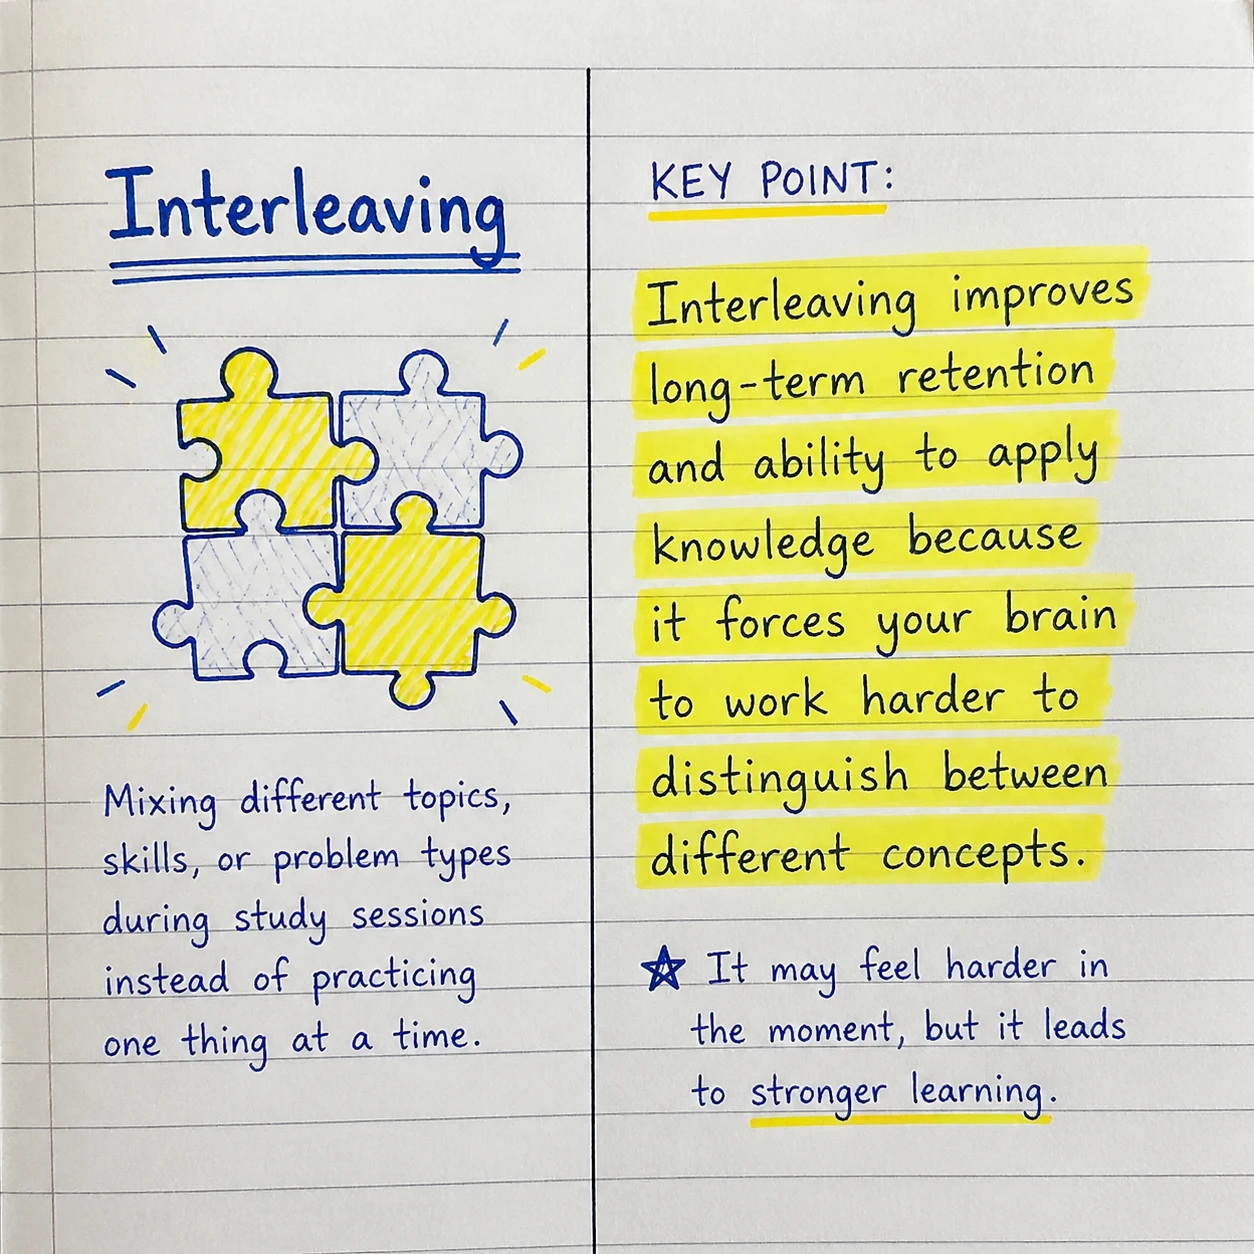 Interleaving
Mixing different topics,
skills, or problem types
during study sessions
instead of practicing
one thing at a time.
KEY POINT:
Interleaving improves
long-term retention
and ability to apply
knowledge because
it forces your brain
to work harder to
distinguish between
different concepts.
It may feel harder in
the moment, but it leads
to stronger learning.